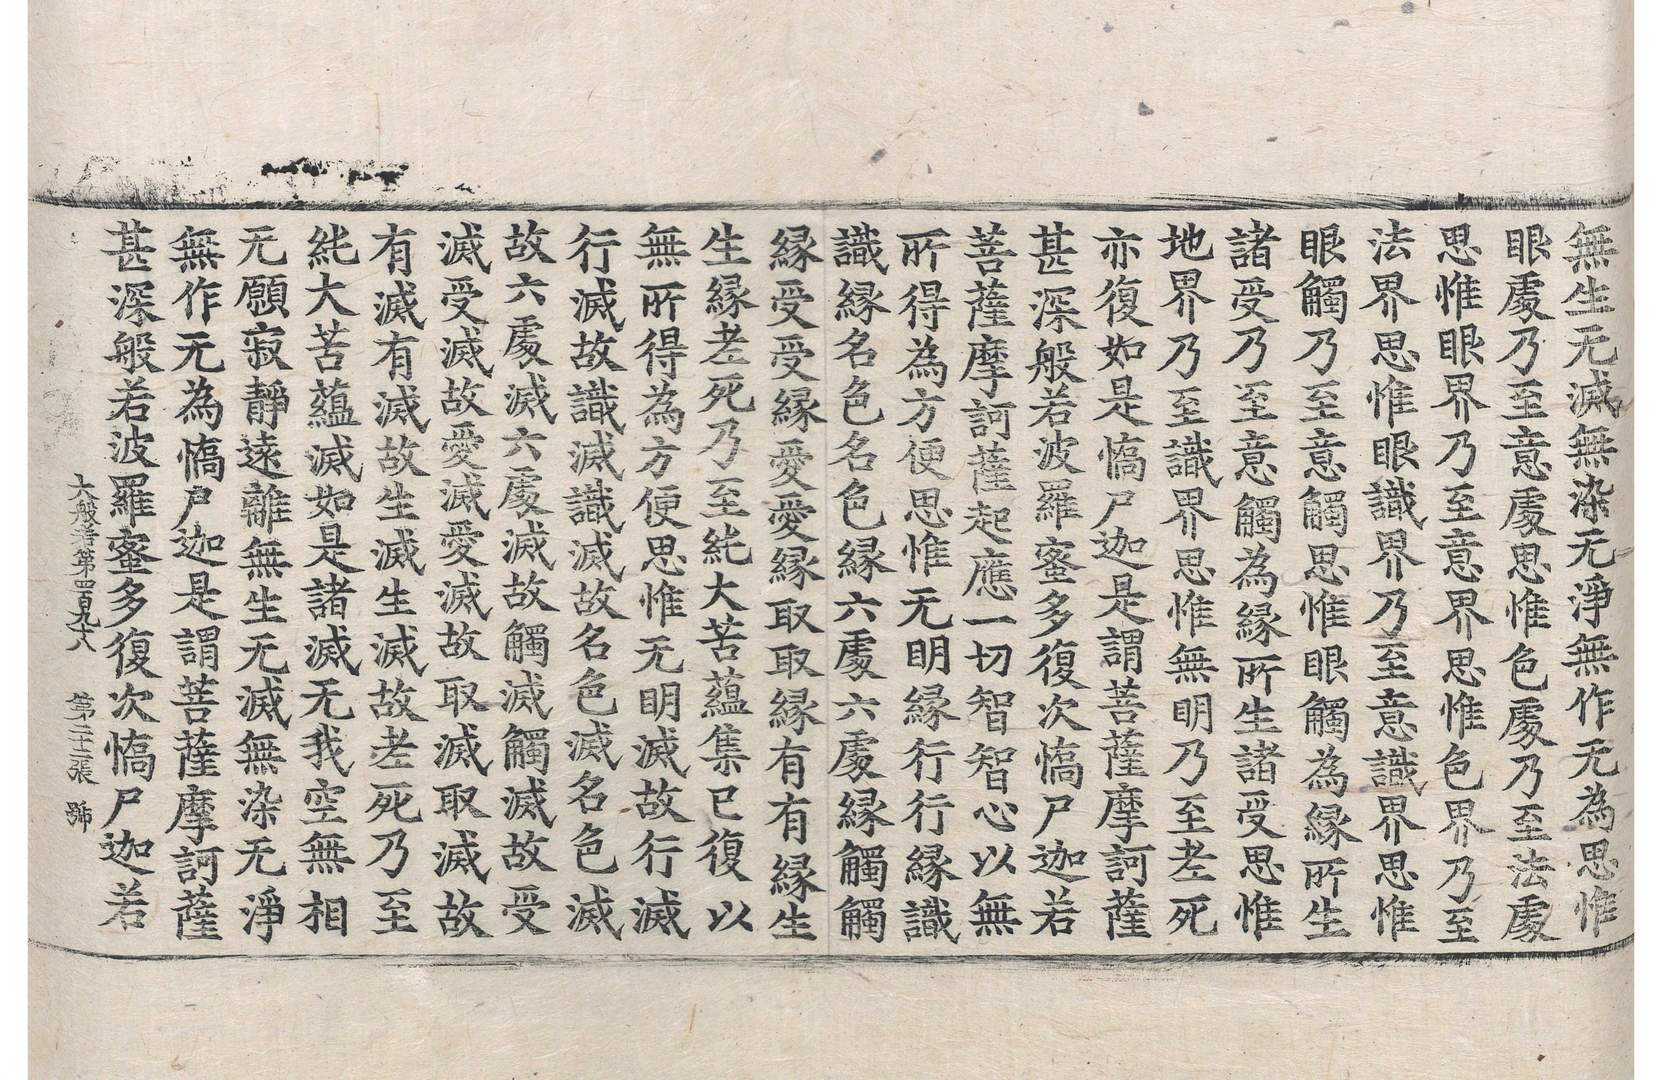 無生无滅無染无淨無作无為思惟
眼處乃至意處思惟色處乃至法處
思惟眼界乃至意界思惟色界乃至
法界思惟眼識界乃至意識界思惟
眼觸乃至意觸思惟眼觸為緣所生
諸受乃至意觸為緣所生諸受思惟
地界乃至識界思惟無明乃至老死
亦復如是憍尸迦是謂菩薩摩訶薩
甚深般若波羅蜜多復次憍尸迦若
菩薩摩訶薩起應一切智智心以無
所得為方便思惟无明緣行行緣識
識緣名色名色緣六處六處緣觸觸
緣受受緣愛愛緣取取緣有有緣生
生緣老死乃至純大苦蘊集已復以
無所得為方便思惟无明滅故行滅
行滅故識滅識滅故名色滅名色滅
故六處滅六處滅故觸滅觸滅故受
滅受滅故愛滅愛滅故取滅取滅故
有滅有滅故生滅生滅故老死乃至
純大苦蘊滅如是諸滅无我空無相
无願寂靜遠離無生无滅無染无淨
無作无為憍尸迦是謂菩薩摩訶薩
甚深般若波羅蜜多復次憍尸迦若
大般若第四百九十 第二十二張 號